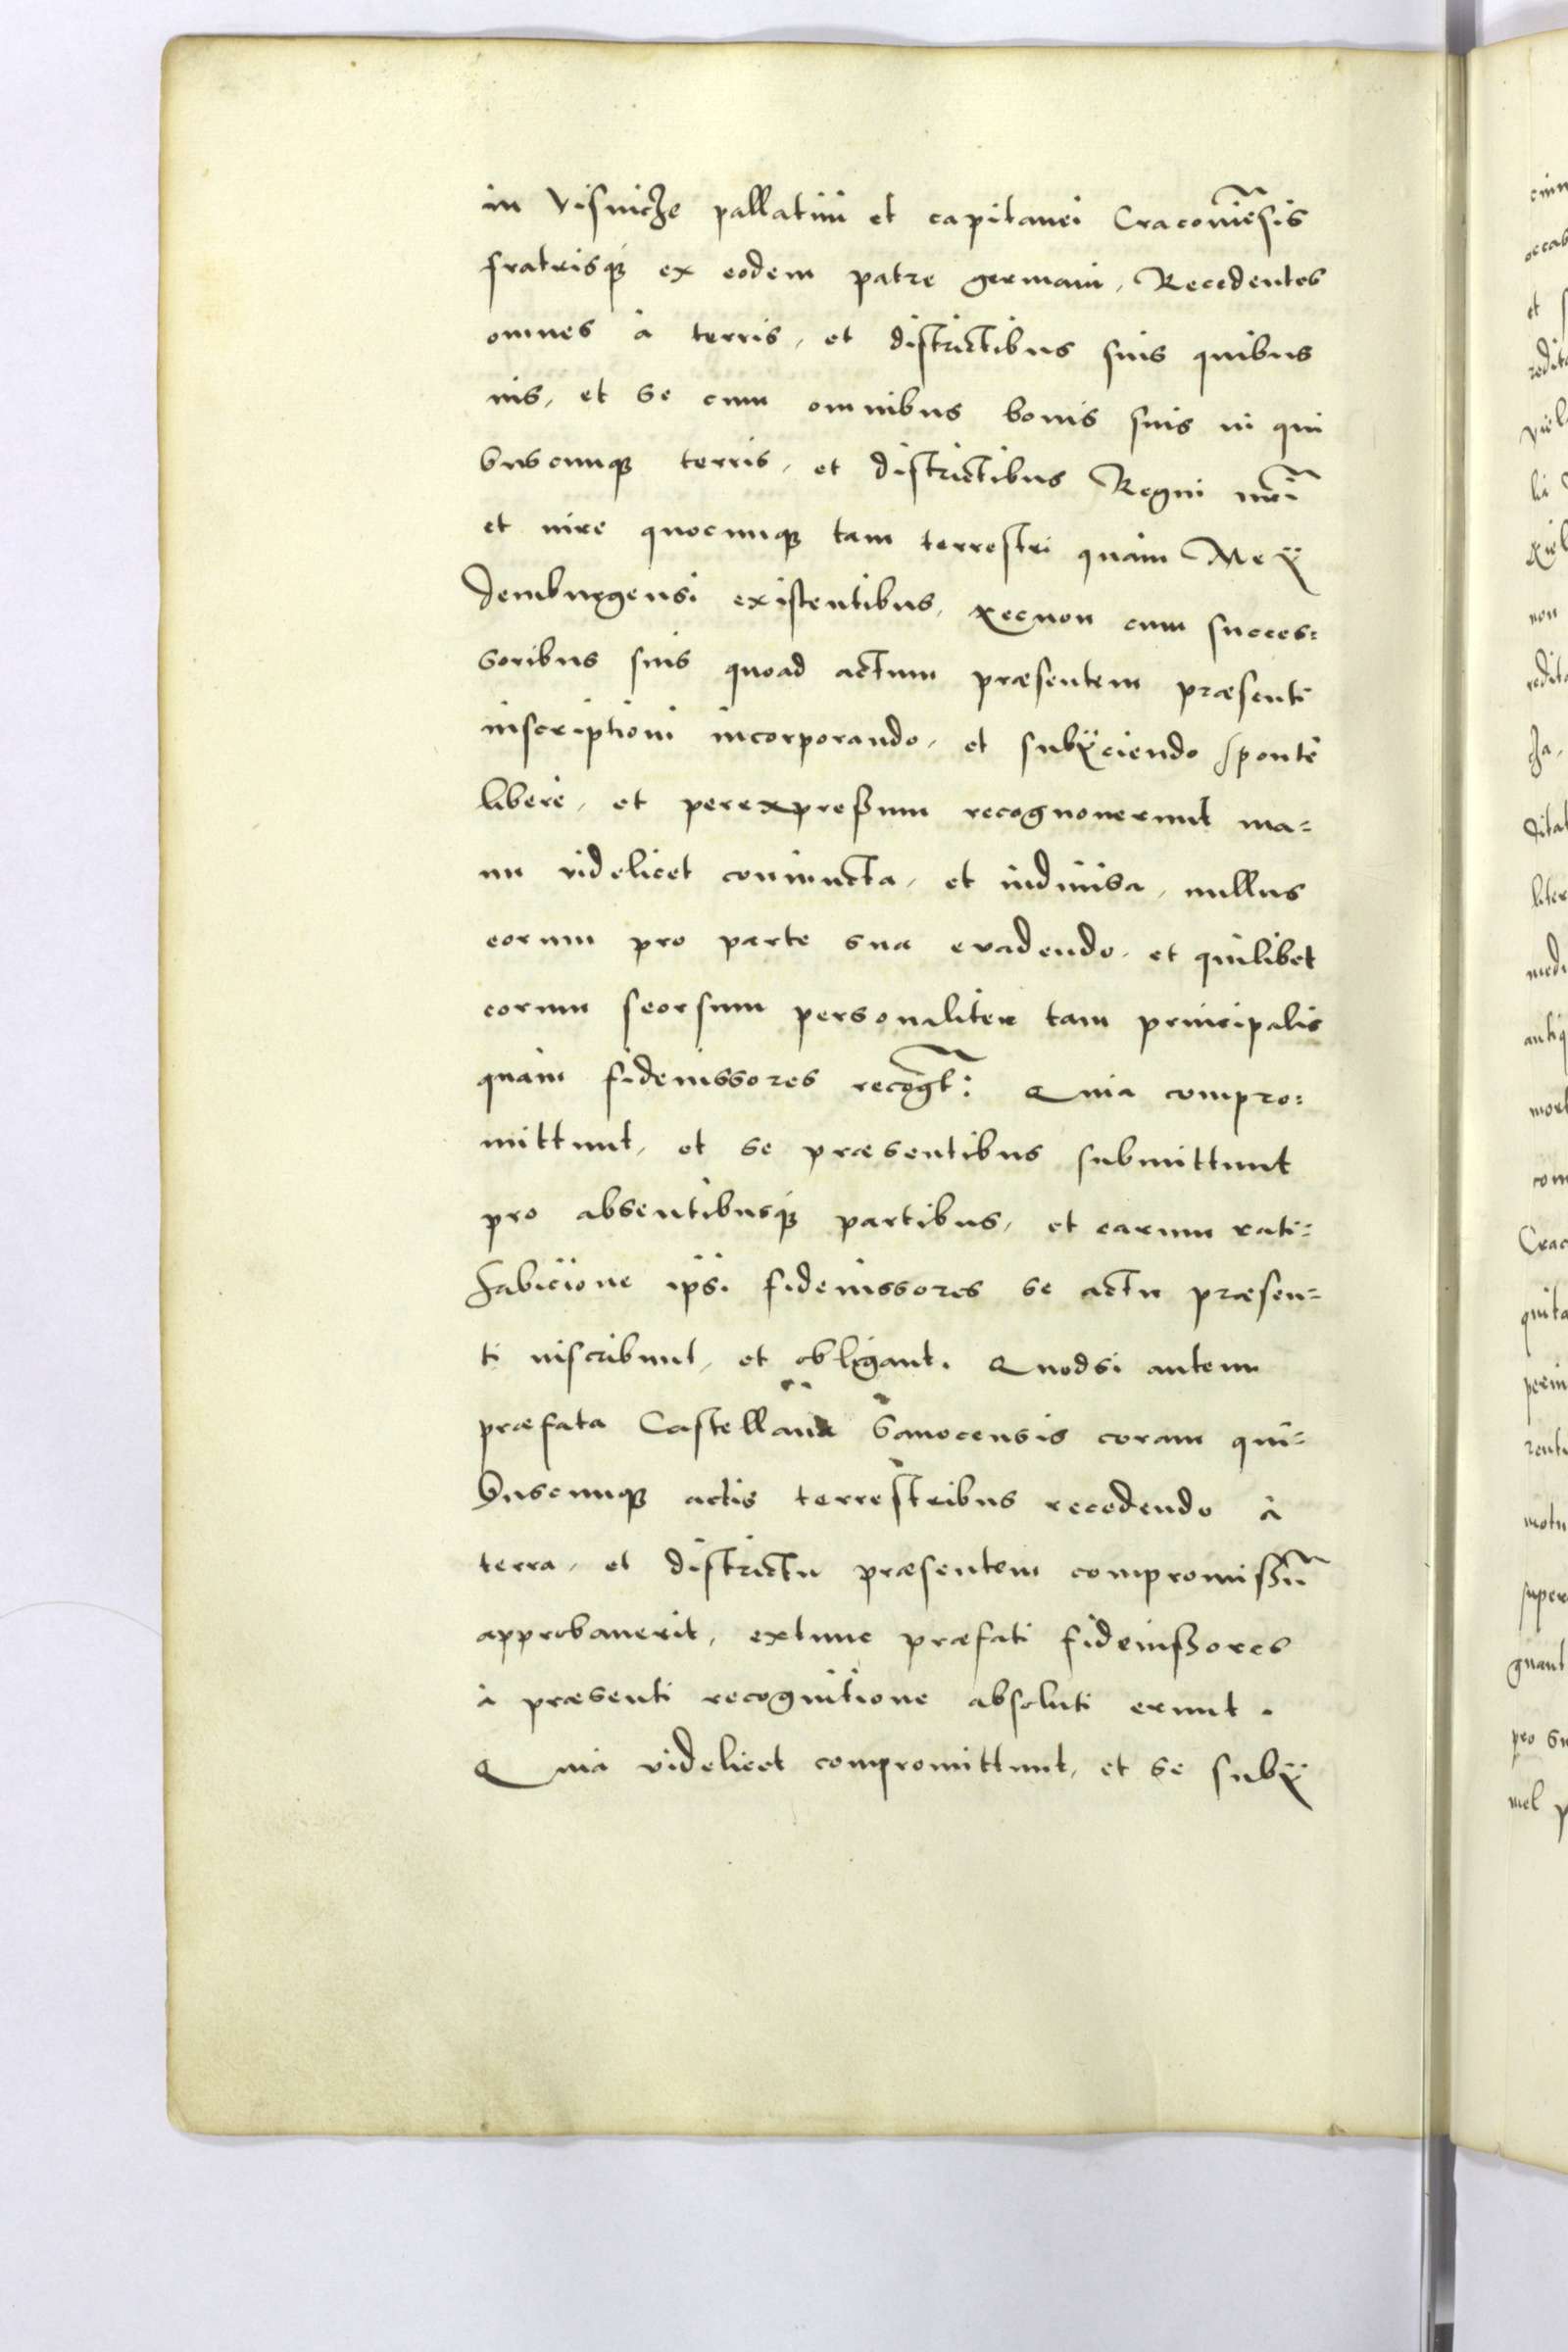 in Visnicze pallatini et capitanei Cracoviēsis
fratrisq; ex eodem patre germani, Recedentes
omnes à terris, et districtibus suis quibus
vis, et se cum omnibus bonis suis in qui
buscunq; terris, et districtibus Regni nr̃i
et iure quocunq; tam terrestri quàm Mey
demburgensi existentibus, necnon cum succes=
soribus suis quoad actum præsentem præsenti
inscriptioni incorporando, et subÿciendo sponte
libere, et perexpreßum recognoverunt ma=
nu videlicet coniuncta, et indivisa, nullus
eorum pro parte sua evadendo, et quilibet
eorum seorsum personaliter tam principalis
quàm fideiussores recog̃t: Quia compro=
mittunt, et se præsentibus submittunt
pro absentibusq; partibus, et earum rati=
habicione ipsi fideiussores se actu præsen=
ti inscribunt, et obligant. Quodsi autem
præfata Castellana Sanocensis coram qui=
buscunq; actis terrestribus recedendo à
terra, et districtu præsentem compromißū
approbaverit, extunc præfati fideiußores
à præsenti recognitione absoluti erunt.
Quia videlicet compromittunt, et se subÿ